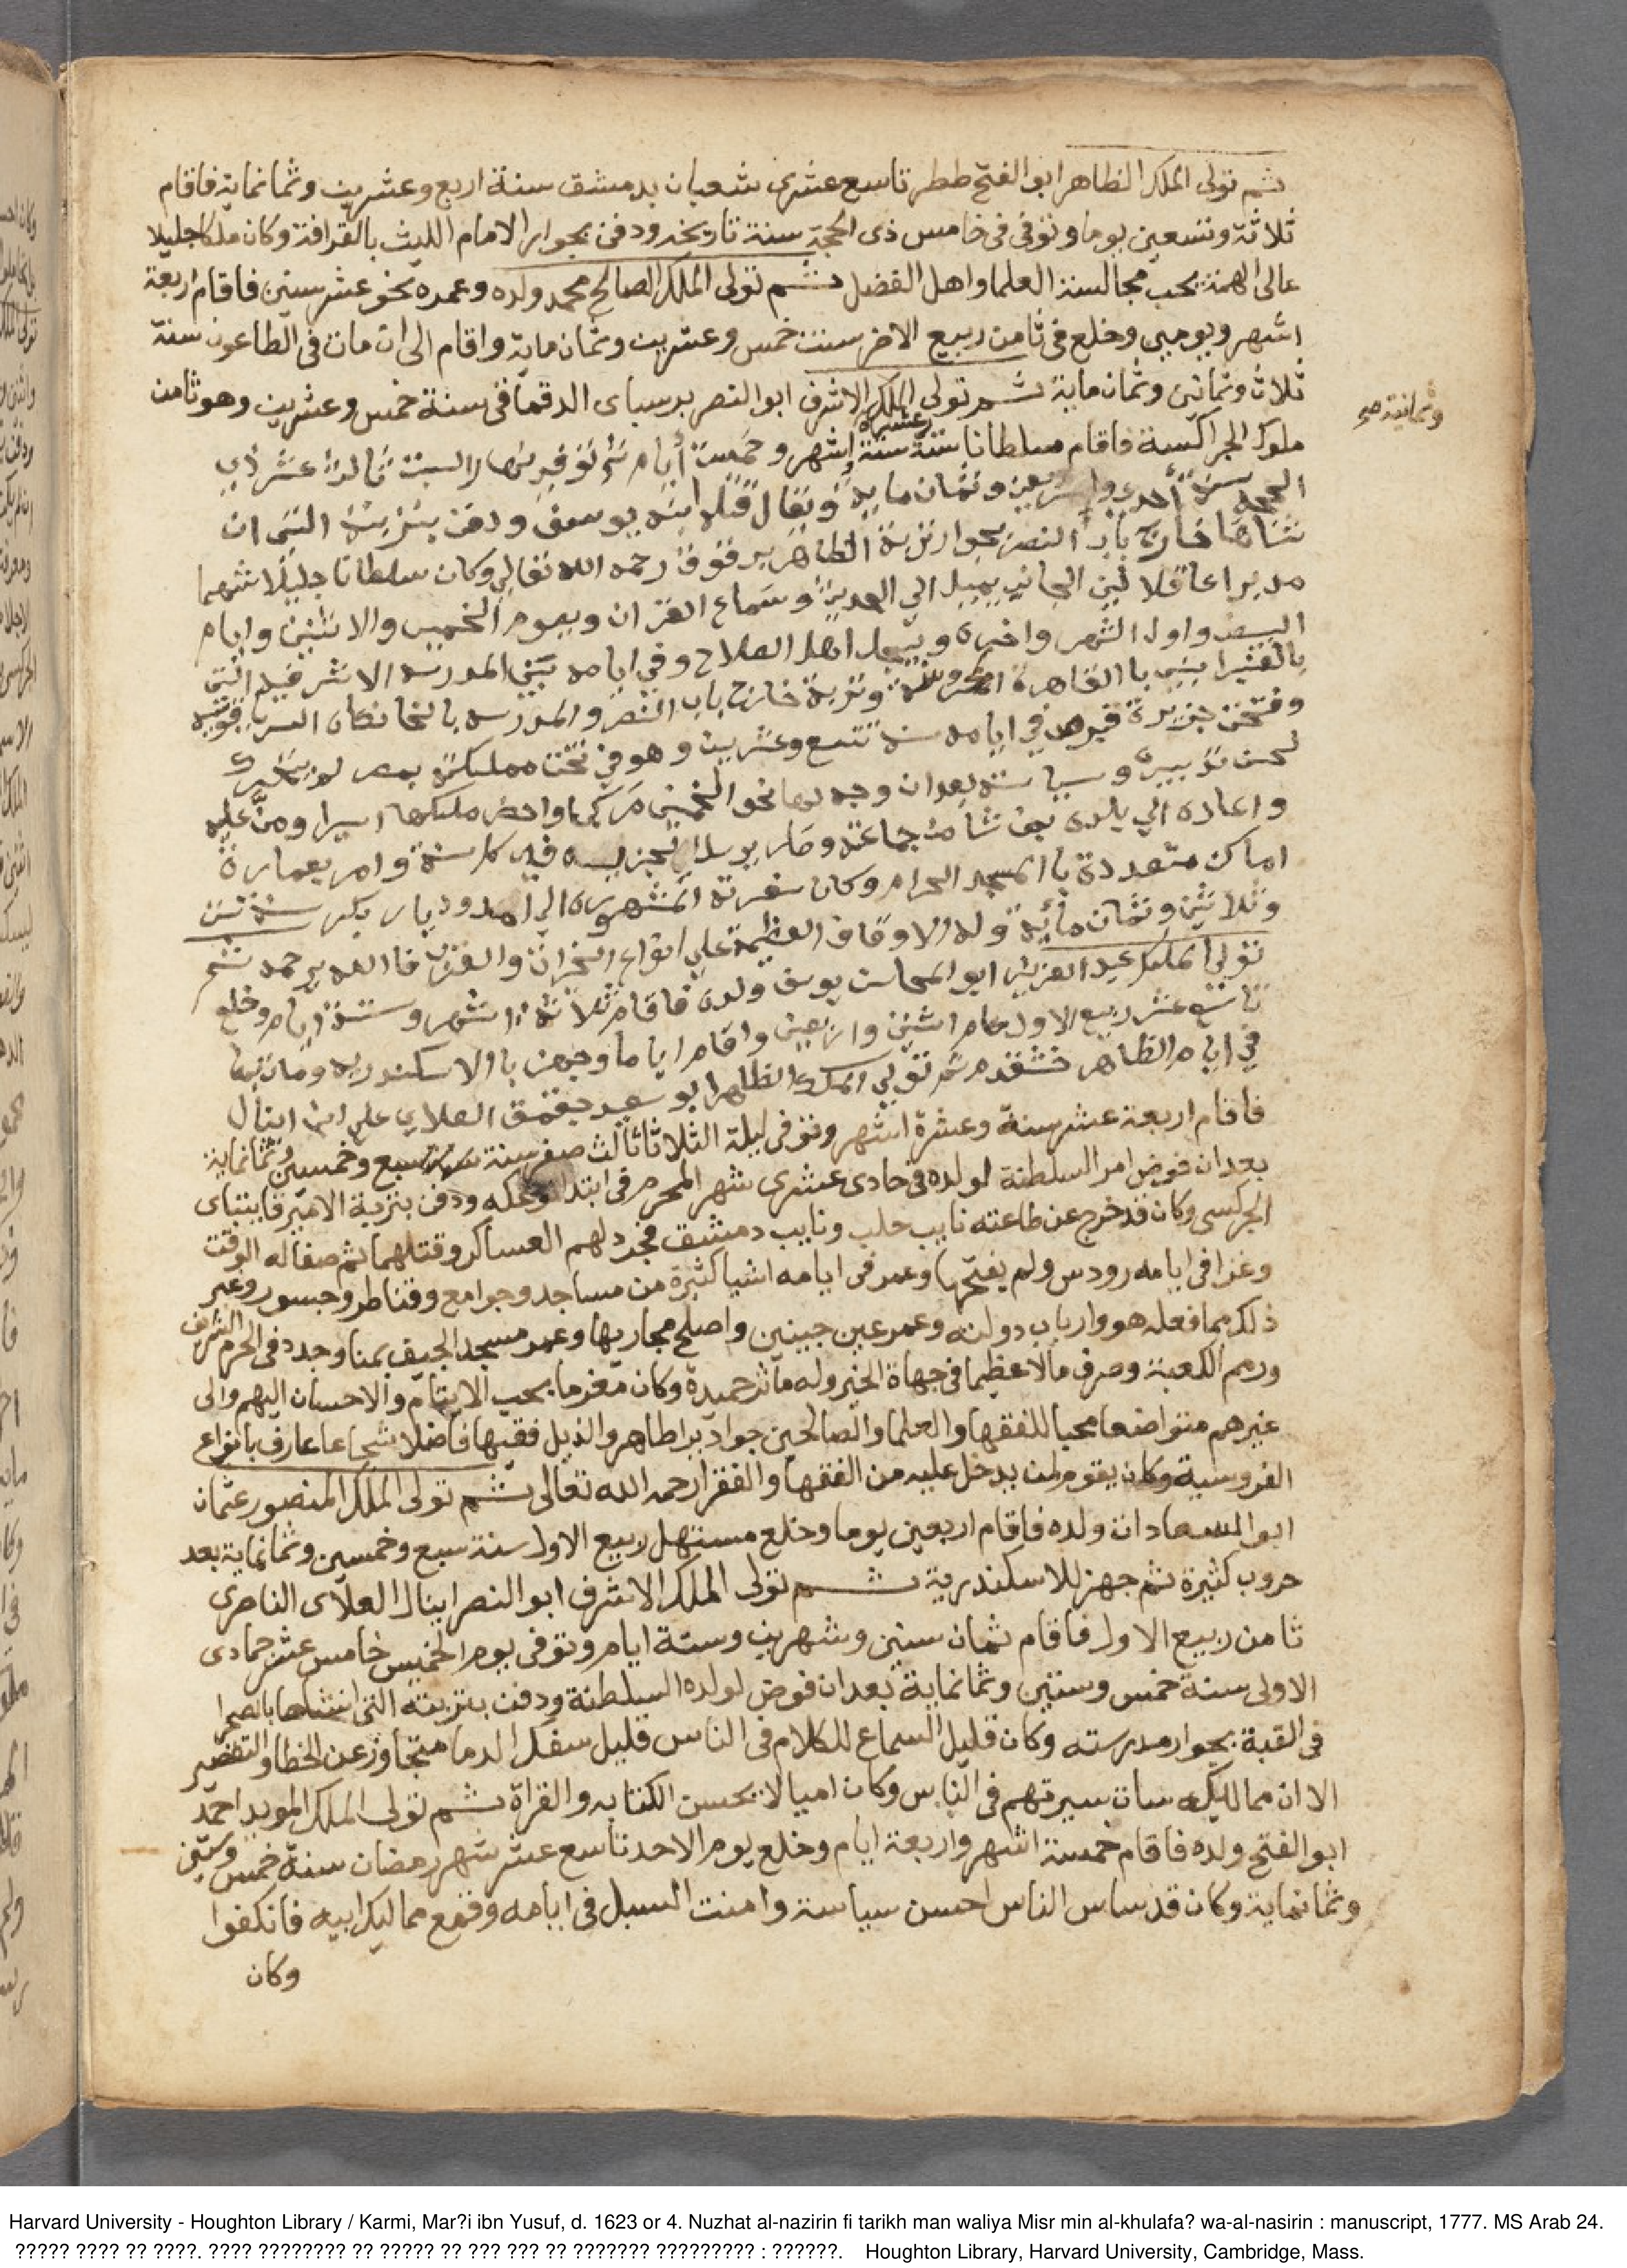 ثم تولى الملك الظاهر ابو الفتح ططر تاسع عشرى شعبان بدمشق سنة اربع وعشرين وثمانماية فاقام
ثلاثة وتسعين يوما وتوفي في خامس ذى الحجة سنة تاريخه ودفن بجوار الامام الليث بالقرافة وكان ملكا جليلا
عالى الهمة يحب مجالسة العلما واهل الفضل ثم تولى الملك الصالح محمد ولده وعمره نحو عشر سنين فاقام اربعة
اشهر ويومين وخلع في ثامن ربيع الاخر سنت خمس وعشرين وثمان ماية واقام الى ان مات في الطاعون سنة
ثلاث وثمانين وثمان ماية ثم تولى الملك الاشرف ابو النصر برسباى الدقماقى سنة خمس وعشرين وهو ثامن
وثمانية صح
ملوك الجراكسة فاقام سلطانا ستة عشرة سنة اشهر وخمست أيام ثم توفي نهار السبت ثالث عشر ذي
الحجه سنة أحدى واربعين وثمان مايه ويقال قتله ابنه يوسف ودفن بتربته التى ان
شناها خارج باب النصر بجوار تربة الظاهر برقوق رحمه الله تعالي وكان سلطانا جليلا شهما
مدبرا عاقلا لين الجانب يميل الي الحديث وسماع القران ويصوم الخميس والاثنين وايام
البيض واول الشهر واخره ويبجل اهل الصلاح وفي ايامه بني المدرسه الاشرفيه التى
بالعنبرانيين بالقاهرة المحروسة وتربة خارج باب النصر والمدرسه بالخانكاه السرياقوسيه
وفتحت جزيرة قبرص في ايامه سنة تسع وعشرين وهو في تخت مملكته بمصر لم يتحرك
لحسن تدبيره وسياسته بعد ان وجه لها نحو الخمسين مركبا واحضر ملكها اسيرا ومن عليه
واعاده الي بلده بمن شا من جماعته وصار يرسل الجزيه في كل سنة وامر بعمارة
اماكن متعددة باالمسجد الحرام وكان سفرته المشهورة الي امد وديار بكر سنة ست
وثلاثين وثمان مأيه وله الاوقاف العظيمة علي انواع الخيرات والقربات فاالله يرحمه ثم
تولي الملك عبد العزيز ابو المحاسن يوسف ولده فاقام ثلاثة اشهر وستة ايام وخلع
تاسع عشر ربيع الاول عام اثنين واربعين واقام اياما وجهز باالاسكندريه ومات بها
في ايام الظاهر خشقدم ثم تولي الملك الظاهر ابو سعيد جقمق العلاي علي ابن اينال
فاقام اربعة عشر سنة وعشرة اشهر وتوفى ليلة الثلاثا ثالث صفر سنة سبع وخمسين وثمانماية
بعد ان فوض امر السلطنة لولده في حادى عشرى شهر المحرم في ابتدا وعكه ودفن بتربة الامير قايتباى
الجركسى وكان قد خرج عن طاعته نايب حلب ونايب دمشق فجرد لهم العساكر وقتلهما ثم صفا له الوقت
وغزا في ايامه رودس ولم يفتحها وعمر في ايامه اشيا كثيرة من مساجد وجوامع وقناطر وجسور وغير
ذلك مما فعله هو وارباب دولته وعمر عين حنين واصلح مجاريها وعمر مسجد الخيف بمنا وجدد في الحرم الشريف
ورمم الكعبة وصرف مالا عظيما في جهاة الخير وله مآثر حميدة وكان مغرما بحب الايتام والاحسان اليهم والى
غيرهم متواضعا محبا للفقها والعلما والصالحين جواد برا طاهر الذيل فقيها فاضلا شجاعا عارف بانواع
الفروسية وكان يقوم لمن يدخل عليه من الفقها والفقرا رحمه الله تعالى ثم تولى الملك المنصور عثمان
ابو السعادات ولده فاقام اربعين يوما وخلع مستهل ربيع الاول سنة سبع وخمسين وثمانماية بعد
حروب كثيرة ثم جهز للاسكندرية ثم تولى الملك الاشرف ابو النصر اينال العلاى الناصرى
ثامن ربيع الاول فاقام ثمان سنين وشهرين وستة ايام وتوفى يوم الخميس خامس عشر جمادى
الاولى سنة خمس وستين وثمانماية بعد ان فوض لولده السلطنة ودفن بتربته التى انشاها بالصحرا
فى القبة بجوار مدرسته وكان قليل السماع للكلام فى الناس قليل سفك الدما متجاوز عن الخطا والتقصير
الا ان مماليكه سات سيرتهم فى الناس وكان اميا لا يحسن الكتابه والقراة ثم تولى الملك المويد احمد
ابو الفتح ولده فاقام خمسة اشهر واربعة ايام وخلع يوم الاحد تاسع عشر شهر رمضان سنة خمس وستين
وثمانماية وكان قد ساس الناس احسن سياسة وامنت السبل في ايامه وقمع مماليك ابيه فانكفوا
وكان
Harvard University - Houghton Library / Karmi, Mar?i ibn Yusuf, d. 1623 or 4. Nuzhat al-nazirin fi tarikh man waliya Misr min al-khulafa? wa-al-nasirin : manuscript, 1777. MS Arab 24.
????? ???? ?? ????. ???? ???????? ?? ????? ?? ??? ??? ?? ??????? ????????? : ??????. Houghton Library, Harvard University, Cambridge, Mass.